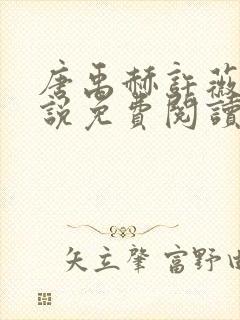 唐禹赫許薇
說免費閱讀
矢立肇 富野由